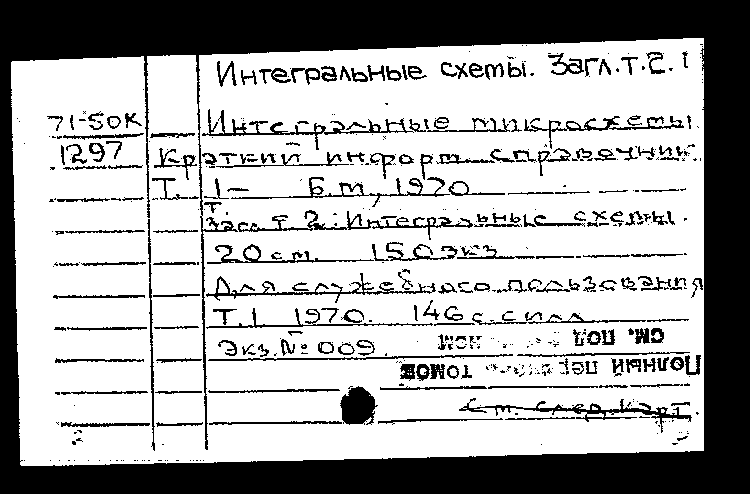 Интегральные схемы. Загл.т.2. 1
71-50К Интегральные микросхемы
1297 Краткий информ. справочник
Т. 1– Б.м., 1970
Т.
Загл. т 2: Интегральные схемы.
20 см. 150 экз
Для служебного пользования
Т.1 1970. 146 с. с илл
Экз. № 009.
см. под
Полный томов
См. след. карт.